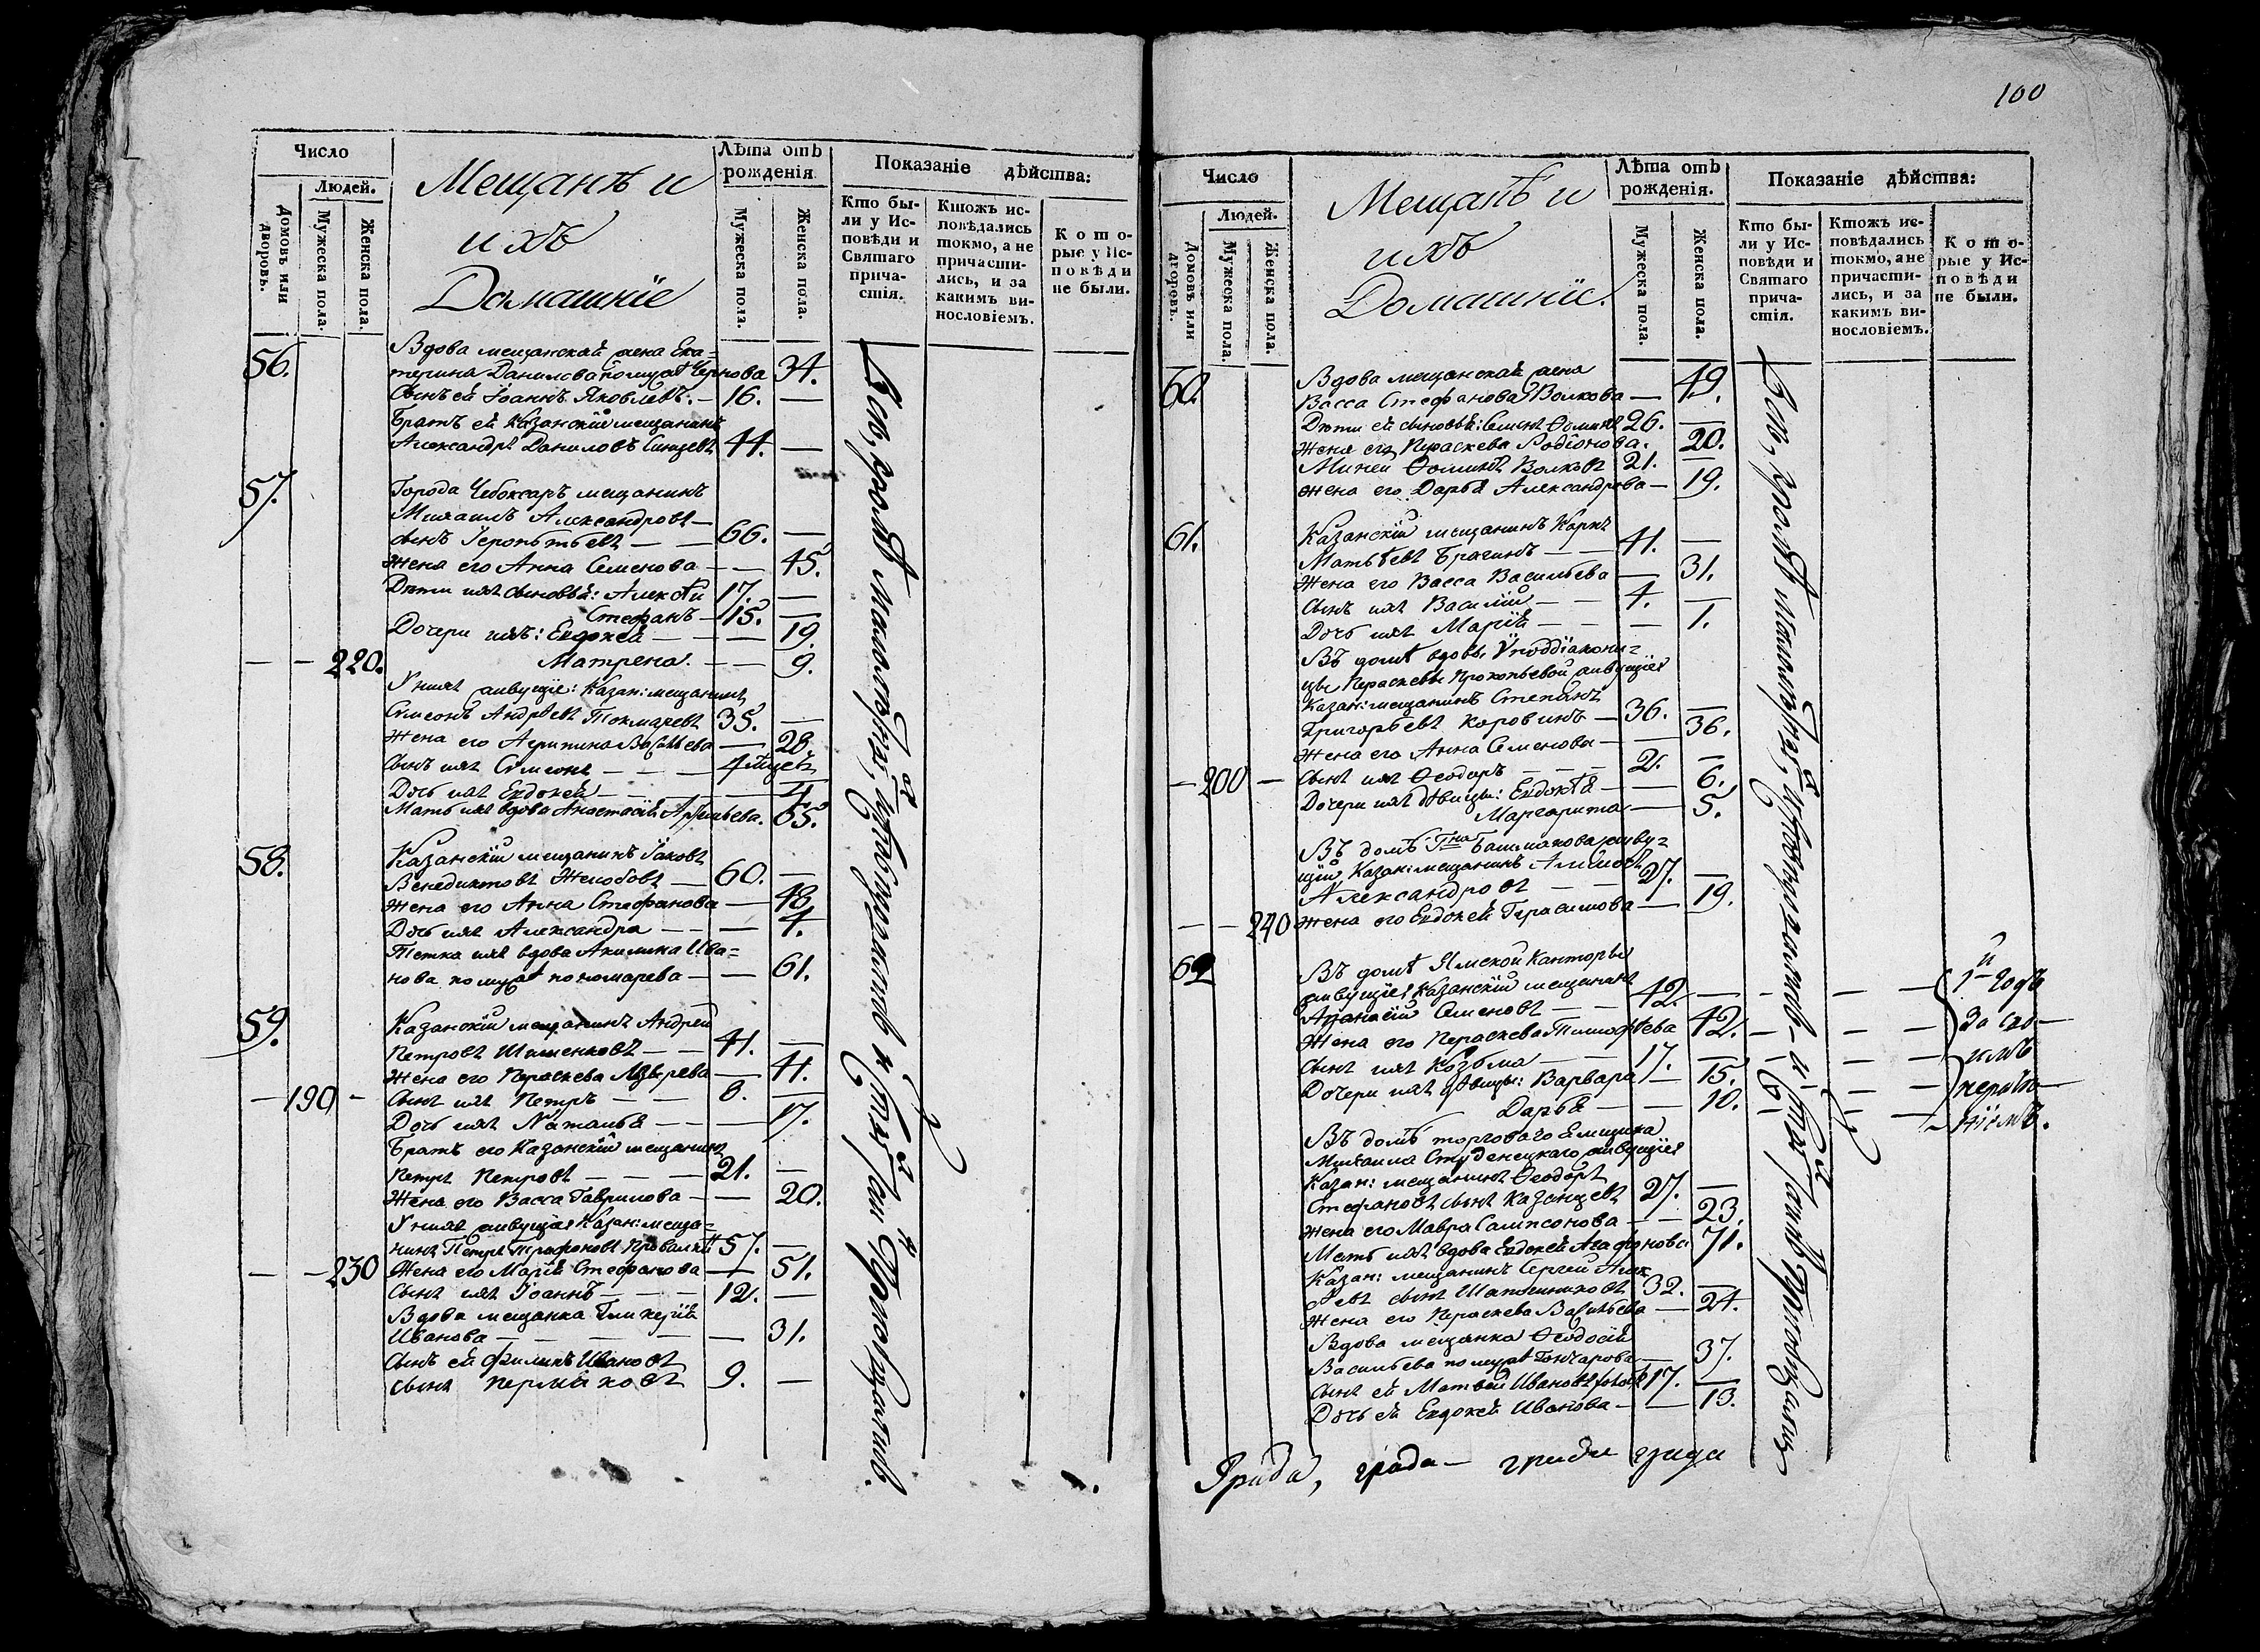 Число
Людей.
Домовъ или дворовъ.
Мужеска пола.
Женска пола.
Мещанѣ и
ихъ
Домашнїе
Лѣта отъ
рожденїя
Мужеска пола.
Женска пола.
Показанїе дѣйства:
Кто бы-
ли у Ис-
повѣди и
Святаго
прича-
стїя.
Ктожъ ис-
повѣдались
токмо, а не
причасти-
лись, и за
какимъ ви-
нословїемъ.
Кото-
рые у Ис-
повѣди
не были.
56. Вдова мещанская жена Ека=
терина Данилова по мужѣ Чернова 34.
Сынъ ей Іоаннъ Яковлевъ. – 16. —
Братъ ей Казанскїй мещанинъ
Александръ Даниловъ 44. —
57. Города Чебоксаръ мещанинъ
Михаилъ Александровъ —
сынъ — — 66. —
Жена его Анна Семенова — — 45.
Дѣти ихъ сыновья: Алексѣй 17. —
Стефанъ – 15. —
Дочери ихъ: Евдокея — — — 19.
— — 220. Матрена. — — 9.
У нихъ живущїе: Казан: мещанинъ
Симеонъ Андрѣевъ Токмаревъ 35. —
Жена его Агрипина Васильева — 28.
Сынъ ихъ Симеонъ — — — 4 мцевъ
Дочь ихъ Евдокея — — — — 4
Мать ихъ вдова Анастасїя 65.
58. Казанскїй мещанинъ Іаковъ
Венедиктовъ Желобовъ — 60. —
Жена его Анна Стефанова — 48.
Дочь ихъ Александра — — — 4.
Тетка ихъ вдова Акилина Ива=
нова по мужѣ пономарева — — 61.
59. Казанскїй мещанинъ Андрей
Петровъ — — 41. —
Жена его Параскева — 41.
— 190 — Сынъ ихъ Петръ — — 8. —
Дочь ихъ Наталья — — — 17.
Братъ его Казанскїй мещанинъ
Петръ Петровъ — — — 21. —
Жена его Васса Гаврилова — — 20.
У нихъ живущїя Казан: меща=
нинъ Петръ 57. —
— — 230 Жена его Марїя Стефанова — 51.
Сынъ ихъ Іоаннъ — — — 12. —
Вдова мещанка Гликерїя
Иванова — — — — — 31.
Сынъ ей Филипъ Ивановъ
сынъ Пермяковъ 9. —
Всѣ, кромѣ малолѣтныхъ, исповѣдались и Стыхъ Таинъ Прїобщались.
100
Число
Людей.
Домовъ или дворовъ.
Мужеска пола.
Женска пола.
Мещанѣ и
ихъ
Домашнїе.
Лѣта отъ
рожденїя.
Мужеска пола.
Женска пола.
Показанїе дѣйства:
Кто бы-
ли у Ис-
повѣди и
Святаго
прича-
стїя.
Ктожъ ис-
повѣдались
токмо, а не
причасти-
лись, и за
какимъ ви-
нословїемъ.
Кото-
рые у Ис-
повѣди
не были.
60. Вдова мещанская жена
Васса Стефанова Волкова — 49.
Дѣти ей сыновья: Семенъ Ѳоминъ 26. —
Жена его Параскева Родїонова. 20.
Миней Ѳоминъ Волковъ 21. —
жена его Дарья Александрова — 19.
61. Казанскїй мещанинъ Карпъ
Матвѣевъ Брагинъ — — 41. —
Жена его Васса Васильева — 31.
Сынъ ихъ Василїй — — 4. —
Дочь ихъ Марїя — — — 1.
Въ домѣ вдовы Vподдїакони=
цы Параскевы Прокопьевой живущїя
Казан: мещанинъ Степанъ
Григорьевъ Коровинъ — 36. —
Жена его Анна Семенова — — 36.
— 200 — Сынъ ихъ Ѳеодоръ — — — 2. —
Дочери ихъ дѣвицы: Евдокѣя — — 6.
Маргарита — 5.
Въ домѣ Гна Башмакова живу=
щїй Казан: мещанинъ
Александровъ — — 27. —
— — 240 Жена его Евдокея Герасимова — 19.
62 Въ домѣ Ямской Канторы
живущїя Казанскїй мещанинъ
Афанасїй Семеновъ — 42. —
Жена его Параскева Тимофѣева 42.
Сынъ ихъ Козьма — — 17. —
Дочери ихъ дѣвицы: Варвара — 15.
Дарья — — 10.
1й годъ
За
нїемъ.
Въ домѣ торговаго Ямщика
Михаила Студенецкаго живущїя
Казан: мещанинъ Ѳеодоръ
Стефановъ сынъ Казанцевъ 27. —
Жена его Мавра Сампсонова — — 23.
Мать ихъ вдова Евдокея Агафонова 71.
Казан: мещанинъ Сергей Алек
сѣевъ сынъ 32. —
Жена его Параскева Васильева — 24.
Вдова мещанка Ѳеодосїя
Васильева по мужѣ Гончарова — 37.
Сынъ ей Матвей Ивановъ 17. —
Дочь ей Евдокея Иванова — — 13.
Всѣ, кромѣ малолѣтныхъ, исповѣдались и Стыхъ Таинъ Прїобщались
Града, града — града града